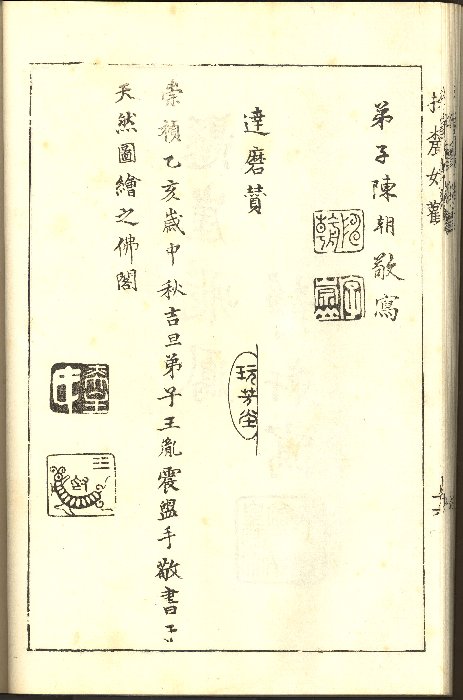 弟子陳朝敬寫
達磨贊
玩芳堂
崇禎乙亥歲中秋吉旦弟子王胤震盥手敬書于
天然圖繪之佛閣